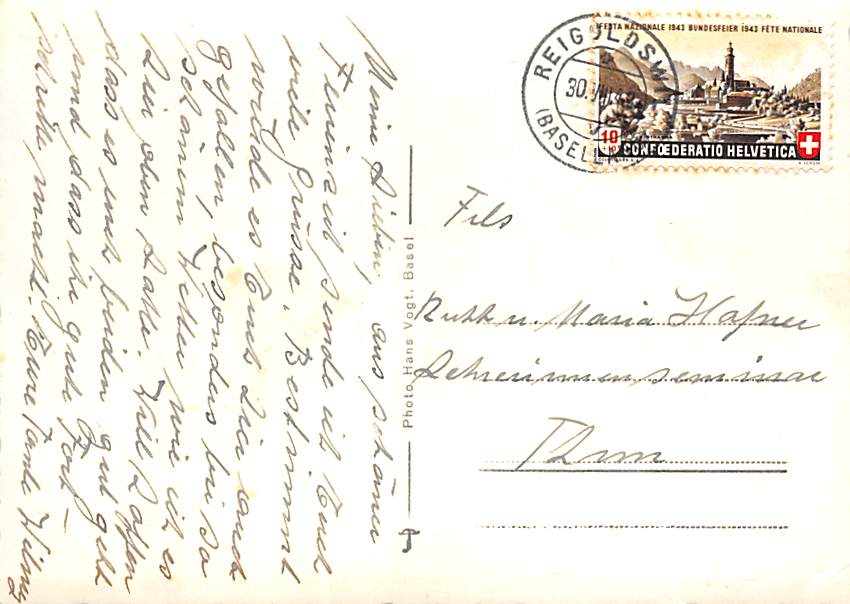 Meine Lieben, aus schöner
Ferienzeit sende ich Euch
viele Grüsse. Bestimmt
würde es Euch hier auch
gefallen, besonders bei so
schönem Wetter wie ich es
hier oben habe. Will hoffen
dass es euch beiden gut geht
und dass ihr gute Fort-
schritte macht. Eure Tante
Photo Hans Vogt, Basel
FESTA NAZIONALE 1943 BUNDESFEIER 1943 FÊTE NATIONALE
10
CONFŒDERATIO HELVETICA
REIGOLDSWI
30. VIII. 4
(BASELL
Frls
Ruth u. Maria Hafner
Lehrerinnenseminar
Thun